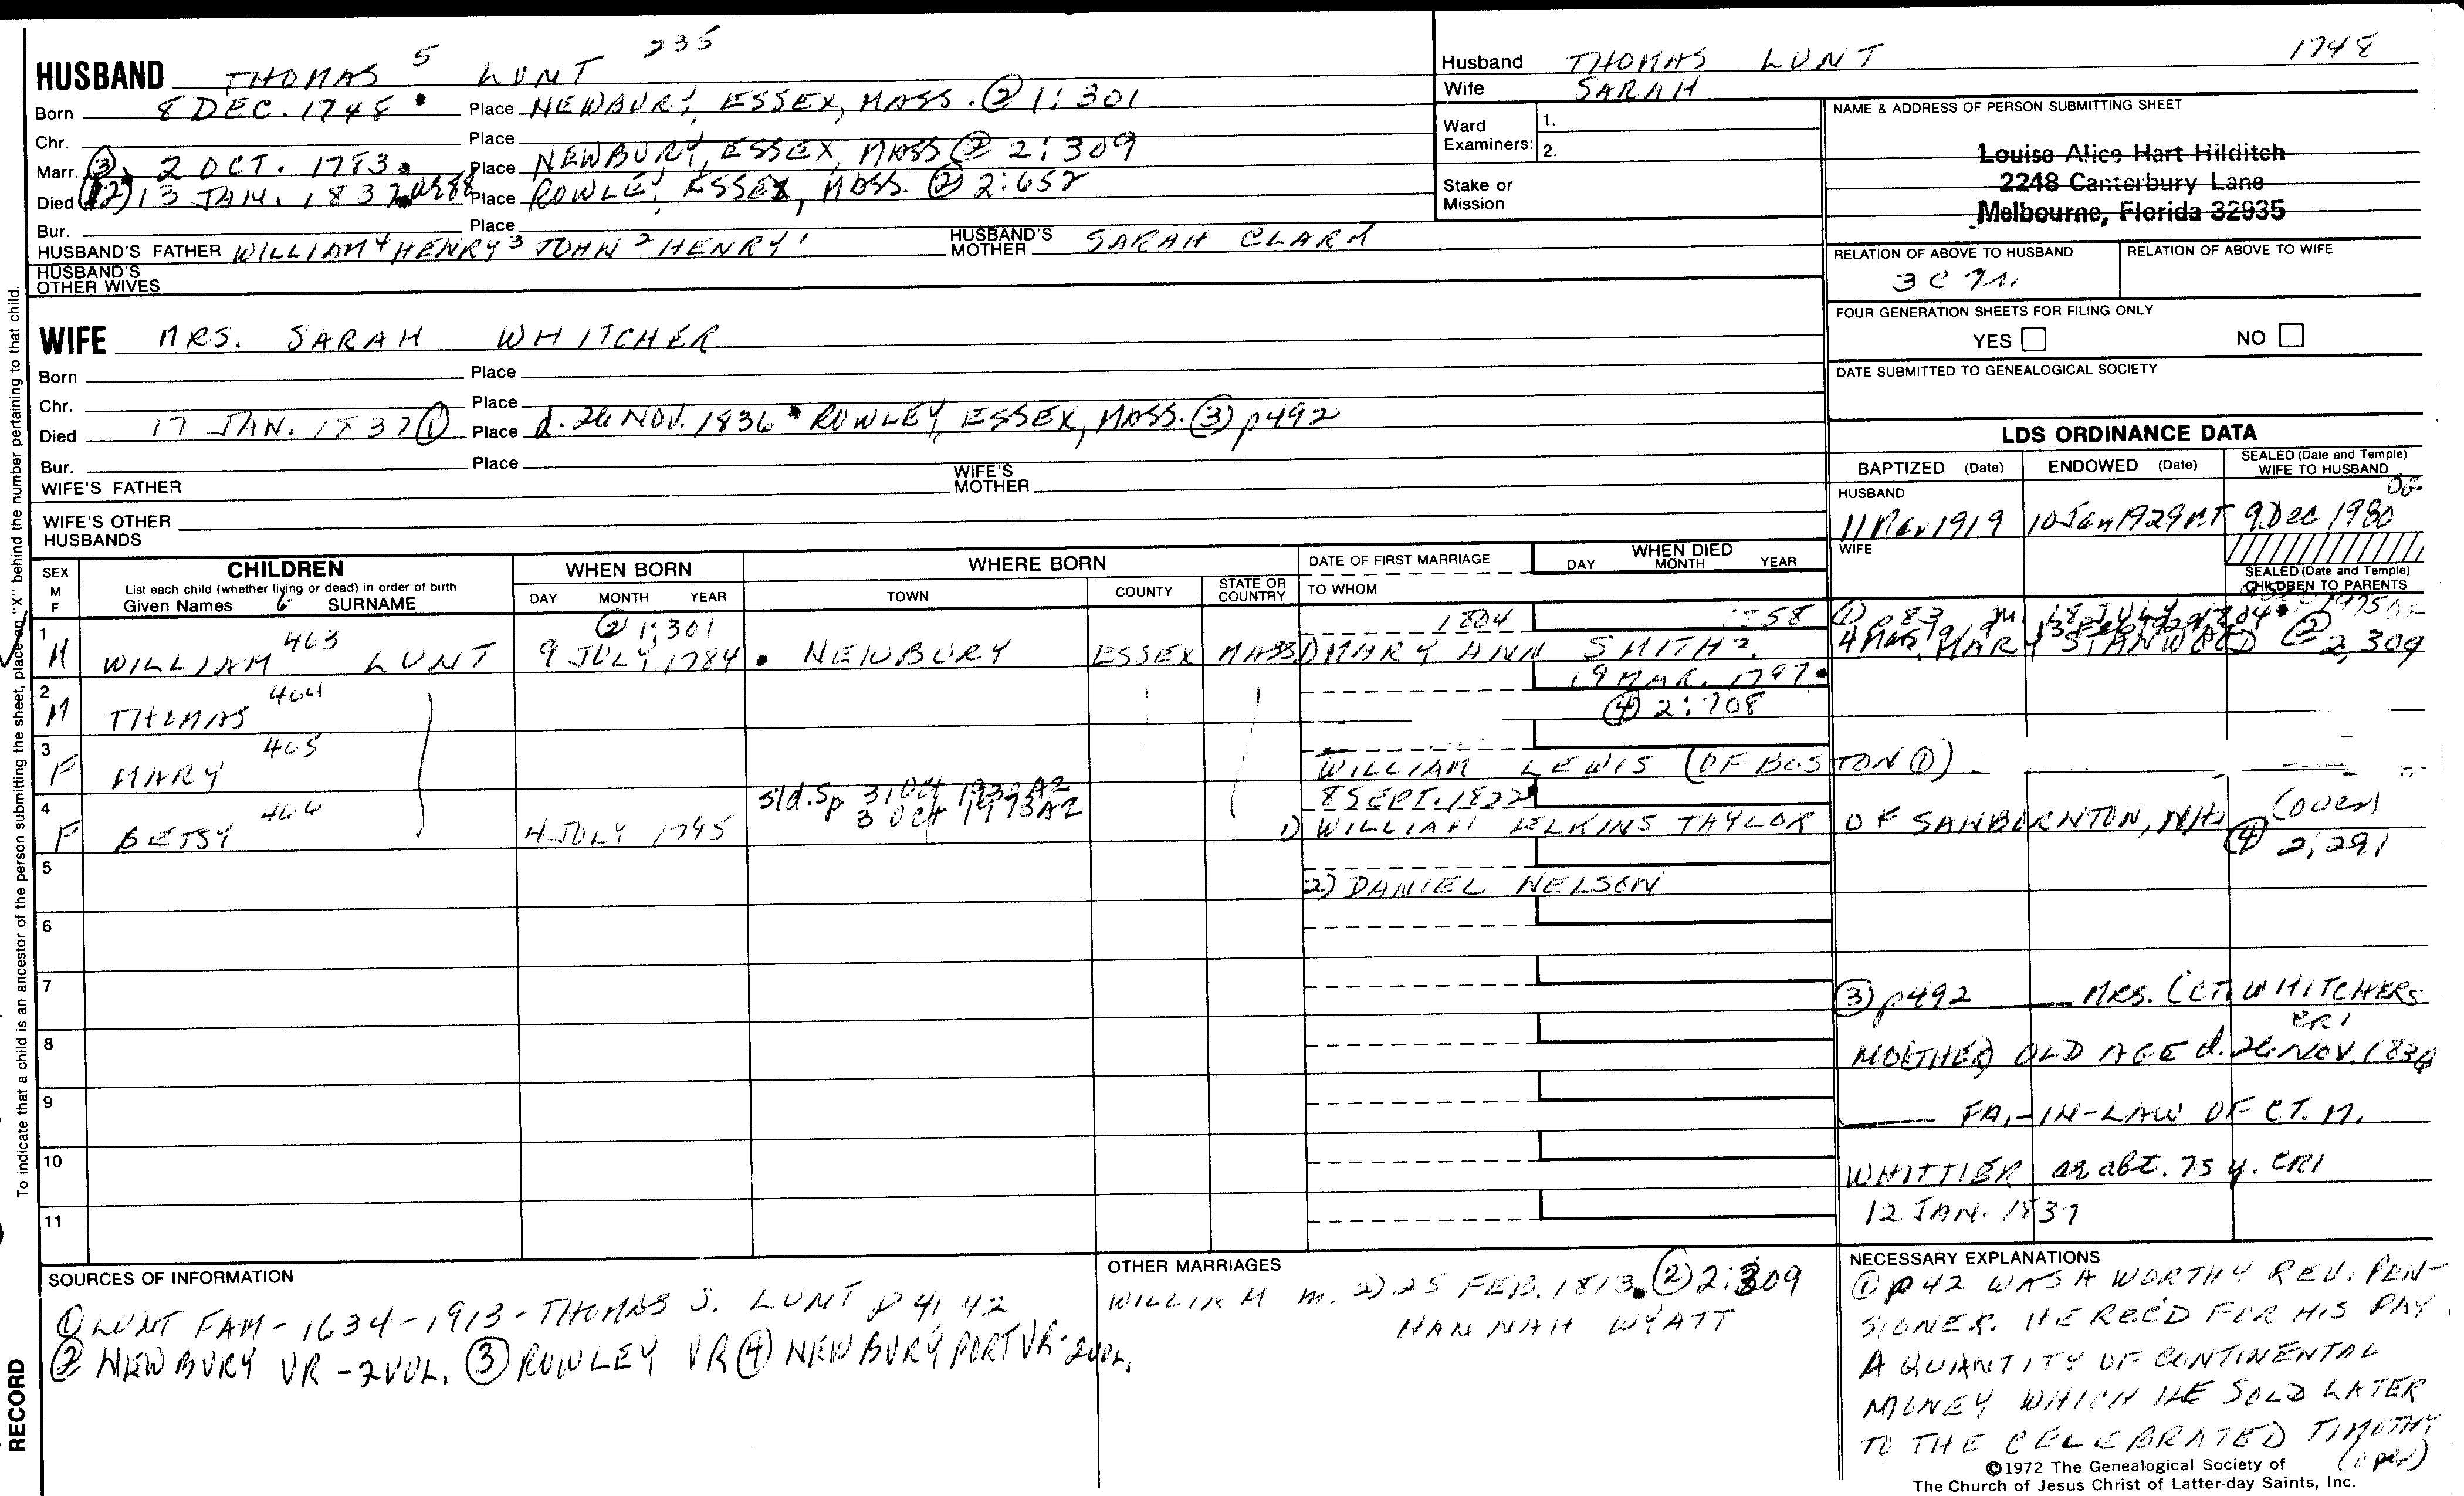 HUSBAND THOMAS 5 LUNT 235
Born 8 DEC. 1748 • Place NEWBURY, ESSEX, MASS. ② 1:301
Chr. Place
Marr. ③ 2 OCT. 1783 • Place NEWBURY, ESSEX, MASS ② 2:309
Died 13 JAN. 1837 Place ROWLEY, ESSEX, MASS. ② 2:652
Bur. Place
HUSBAND'S FATHER WILLIAM⁴ HENRY³ JOHN² HENRY¹ HUSBAND'S MOTHER SARAH CLARK
HUSBAND'S OTHER WIVES
WIFE MRS. SARAH WHITCHER
Born Place
Chr. Place
Died 17 JAN. 1837 ① Place d. 26 NOV. 1836 • ROWLEY, ESSEX, MASS. ③ p492
Bur. Place
WIFE'S FATHER WIFE'S MOTHER
WIFE'S OTHER HUSBANDS
Husband THOMAS LUNT 1748
Wife SARAH
Ward Examiners: 1.
2.
Stake or Mission
NAME & ADDRESS OF PERSON SUBMITTING SHEET
Louise Alice Hart Hilditch
2248 Canterbury Lane
Melbourne, Florida 32935
RELATION OF ABOVE TO HUSBAND RELATION OF ABOVE TO WIFE
3 C
FOUR GENERATION SHEETS FOR FILING ONLY
YES NO
DATE SUBMITTED TO GENEALOGICAL SOCIETY
LDS ORDINANCE DATA
BAPTIZED (Date) ENDOWED (Date) SEALED (Date and Temple) WIFE TO HUSBAND
HUSBAND
11 Mar 1919 10 Jan 1929 9 Dec 1980
WIFE
SEALED (Date and Temple) CHILDREN TO PARENTS
To indicate that a child is an ancestor of the person submitting the sheet, place an "X" behind the number pertaining to that child.
SEX M F CHILDREN List each child (whether living or dead) in order of birth Given Names SURNAME WHEN BORN DAY MONTH YEAR WHERE BORN TOWN COUNTY STATE OR COUNTRY DATE OF FIRST MARRIAGE TO WHOM WHEN DIED DAY MONTH YEAR
② 1:301 1804 1858 ① p83 m 18 JULY 1804 •
1 M WILLIAM 463 LUNT 9 JULY 1784 • NEWBURY ESSEX MASS MARY ANN SMITH 2. MARY STANWOOD ② 2,309
19 MAR. 1797 •
2 M THOMAS 464 ④ 2:708
3 F MARY 465 WILLIAM LEWIS (OF BOSTON ①)
sld. Sp 31 Oct
3 Oct 1973 AZ 8 SEPT. 1822
4 F BETSY 466 4 JULY 1795 1) WILLIAM ELKINS TAYLOR OF SANBORNTON, N.H. (over)
④ 2:291
5 2) DANIEL NELSON
6
7
③ p492 MRS. (CT. WHITCHERS
8 MOTHER) OLD AGE d. 26 NOV. CR1
9 FA.-IN-LAW OF CT. M.
10 WHITTIER abt. 75 y. CR1
11 12 JAN. 1837
SOURCES OF INFORMATION
① LUNT FAM - 1634-1913 - THOMAS S. LUNT p 41 42
② NEWBURY VR - 2 VOL. ③ ROWLEY VR ④ NEWBURYPORT VR - 2 VOL.
OTHER MARRIAGES
WILLIAM m. 2) 25 FEB. 1813 • ② 2:309
HANNAH WYATT
NECESSARY EXPLANATIONS
① p 42 WAS A WORTHY REV. PEN-
SIONER. HE REC'D FOR HIS PAY
A QUANTITY OF CONTINENTAL
MONEY WHICH HE SOLD LATER
TO THE CELEBRATED TIMOTHY
(over)
©1972 The Genealogical Society of
The Church of Jesus Christ of Latter-day Saints, Inc.
RECORD